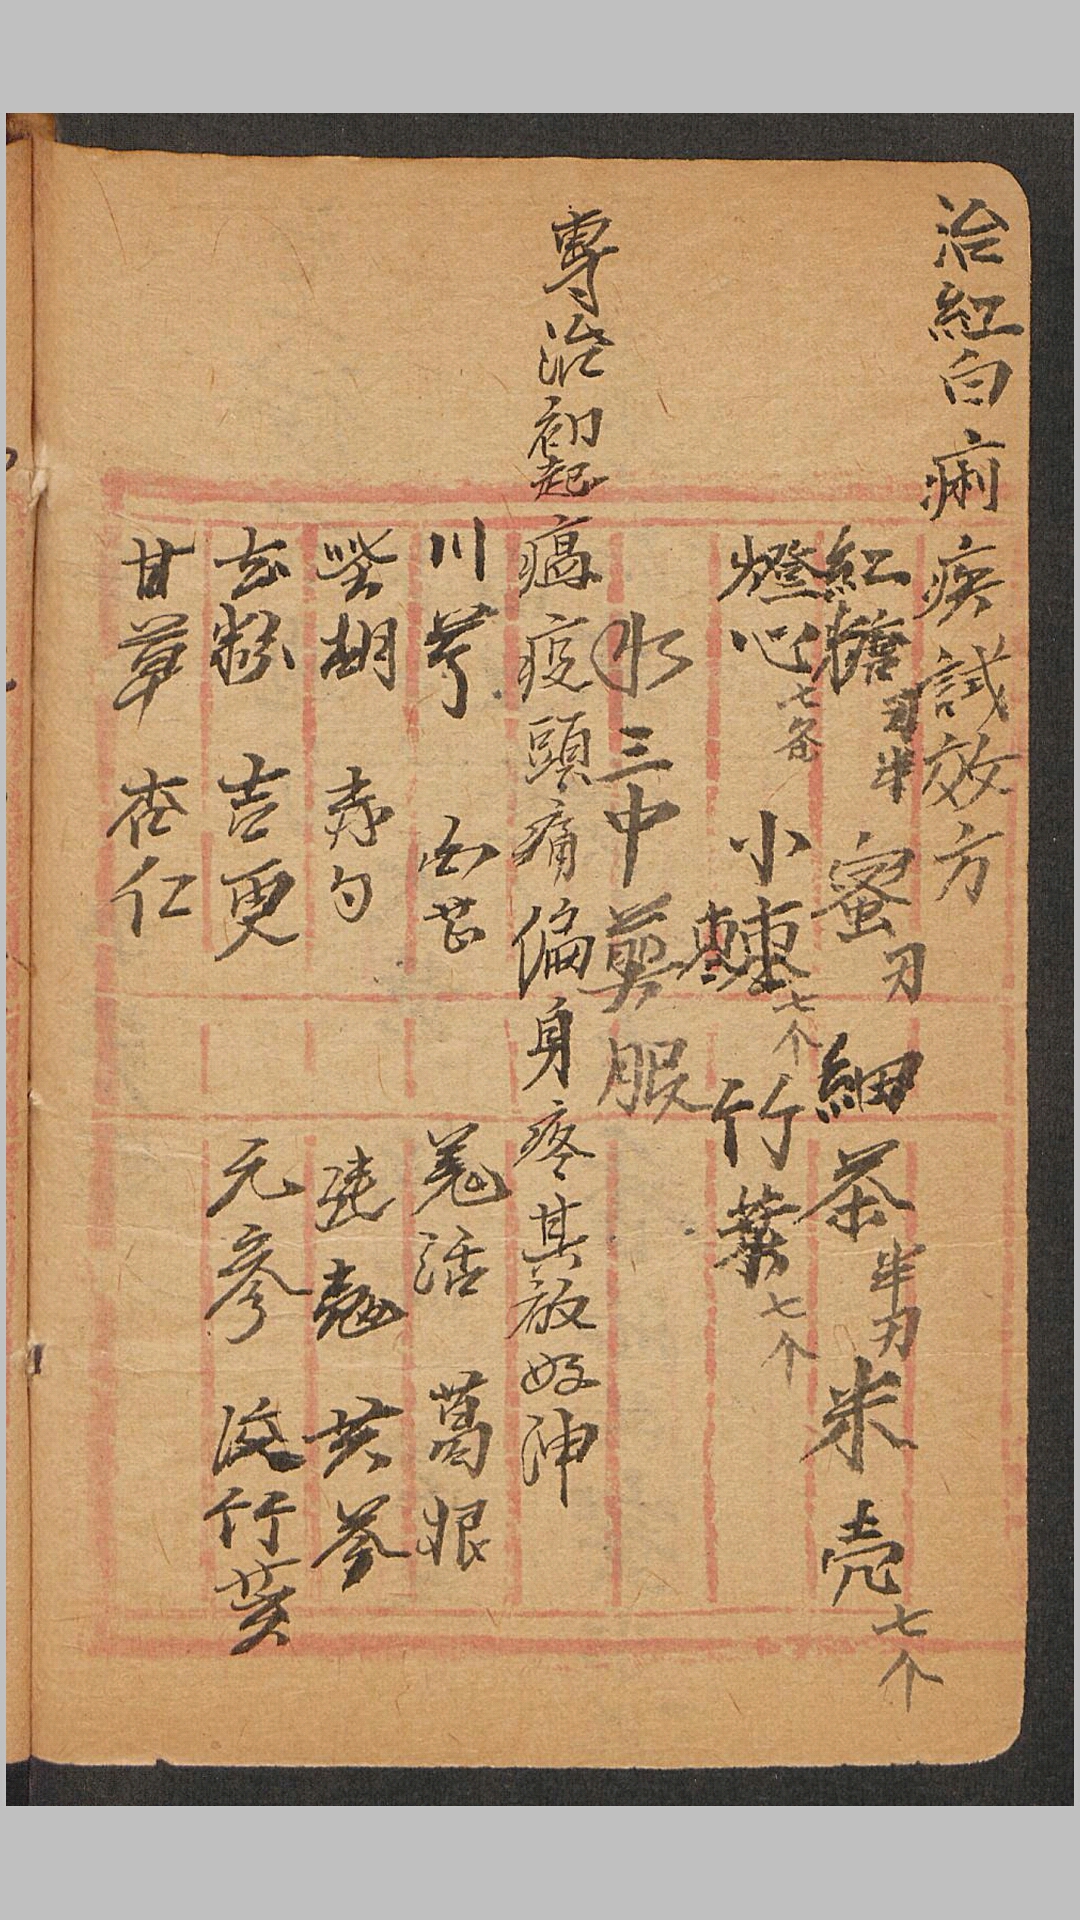 治紅白痢疾試效方
紅糖刃半 蜜刃 細茶半刃 米壳七个
燈心七 小棗七个 竹葉七个
水三中煎服
專治初起瘟疫頭痛偏身疼其效如神
川芎 白芷 羌活 葛根
柴胡 赤勺 連翹 黄芩
玄粉 吉更 元參 淡竹葉
甘草 杏仁